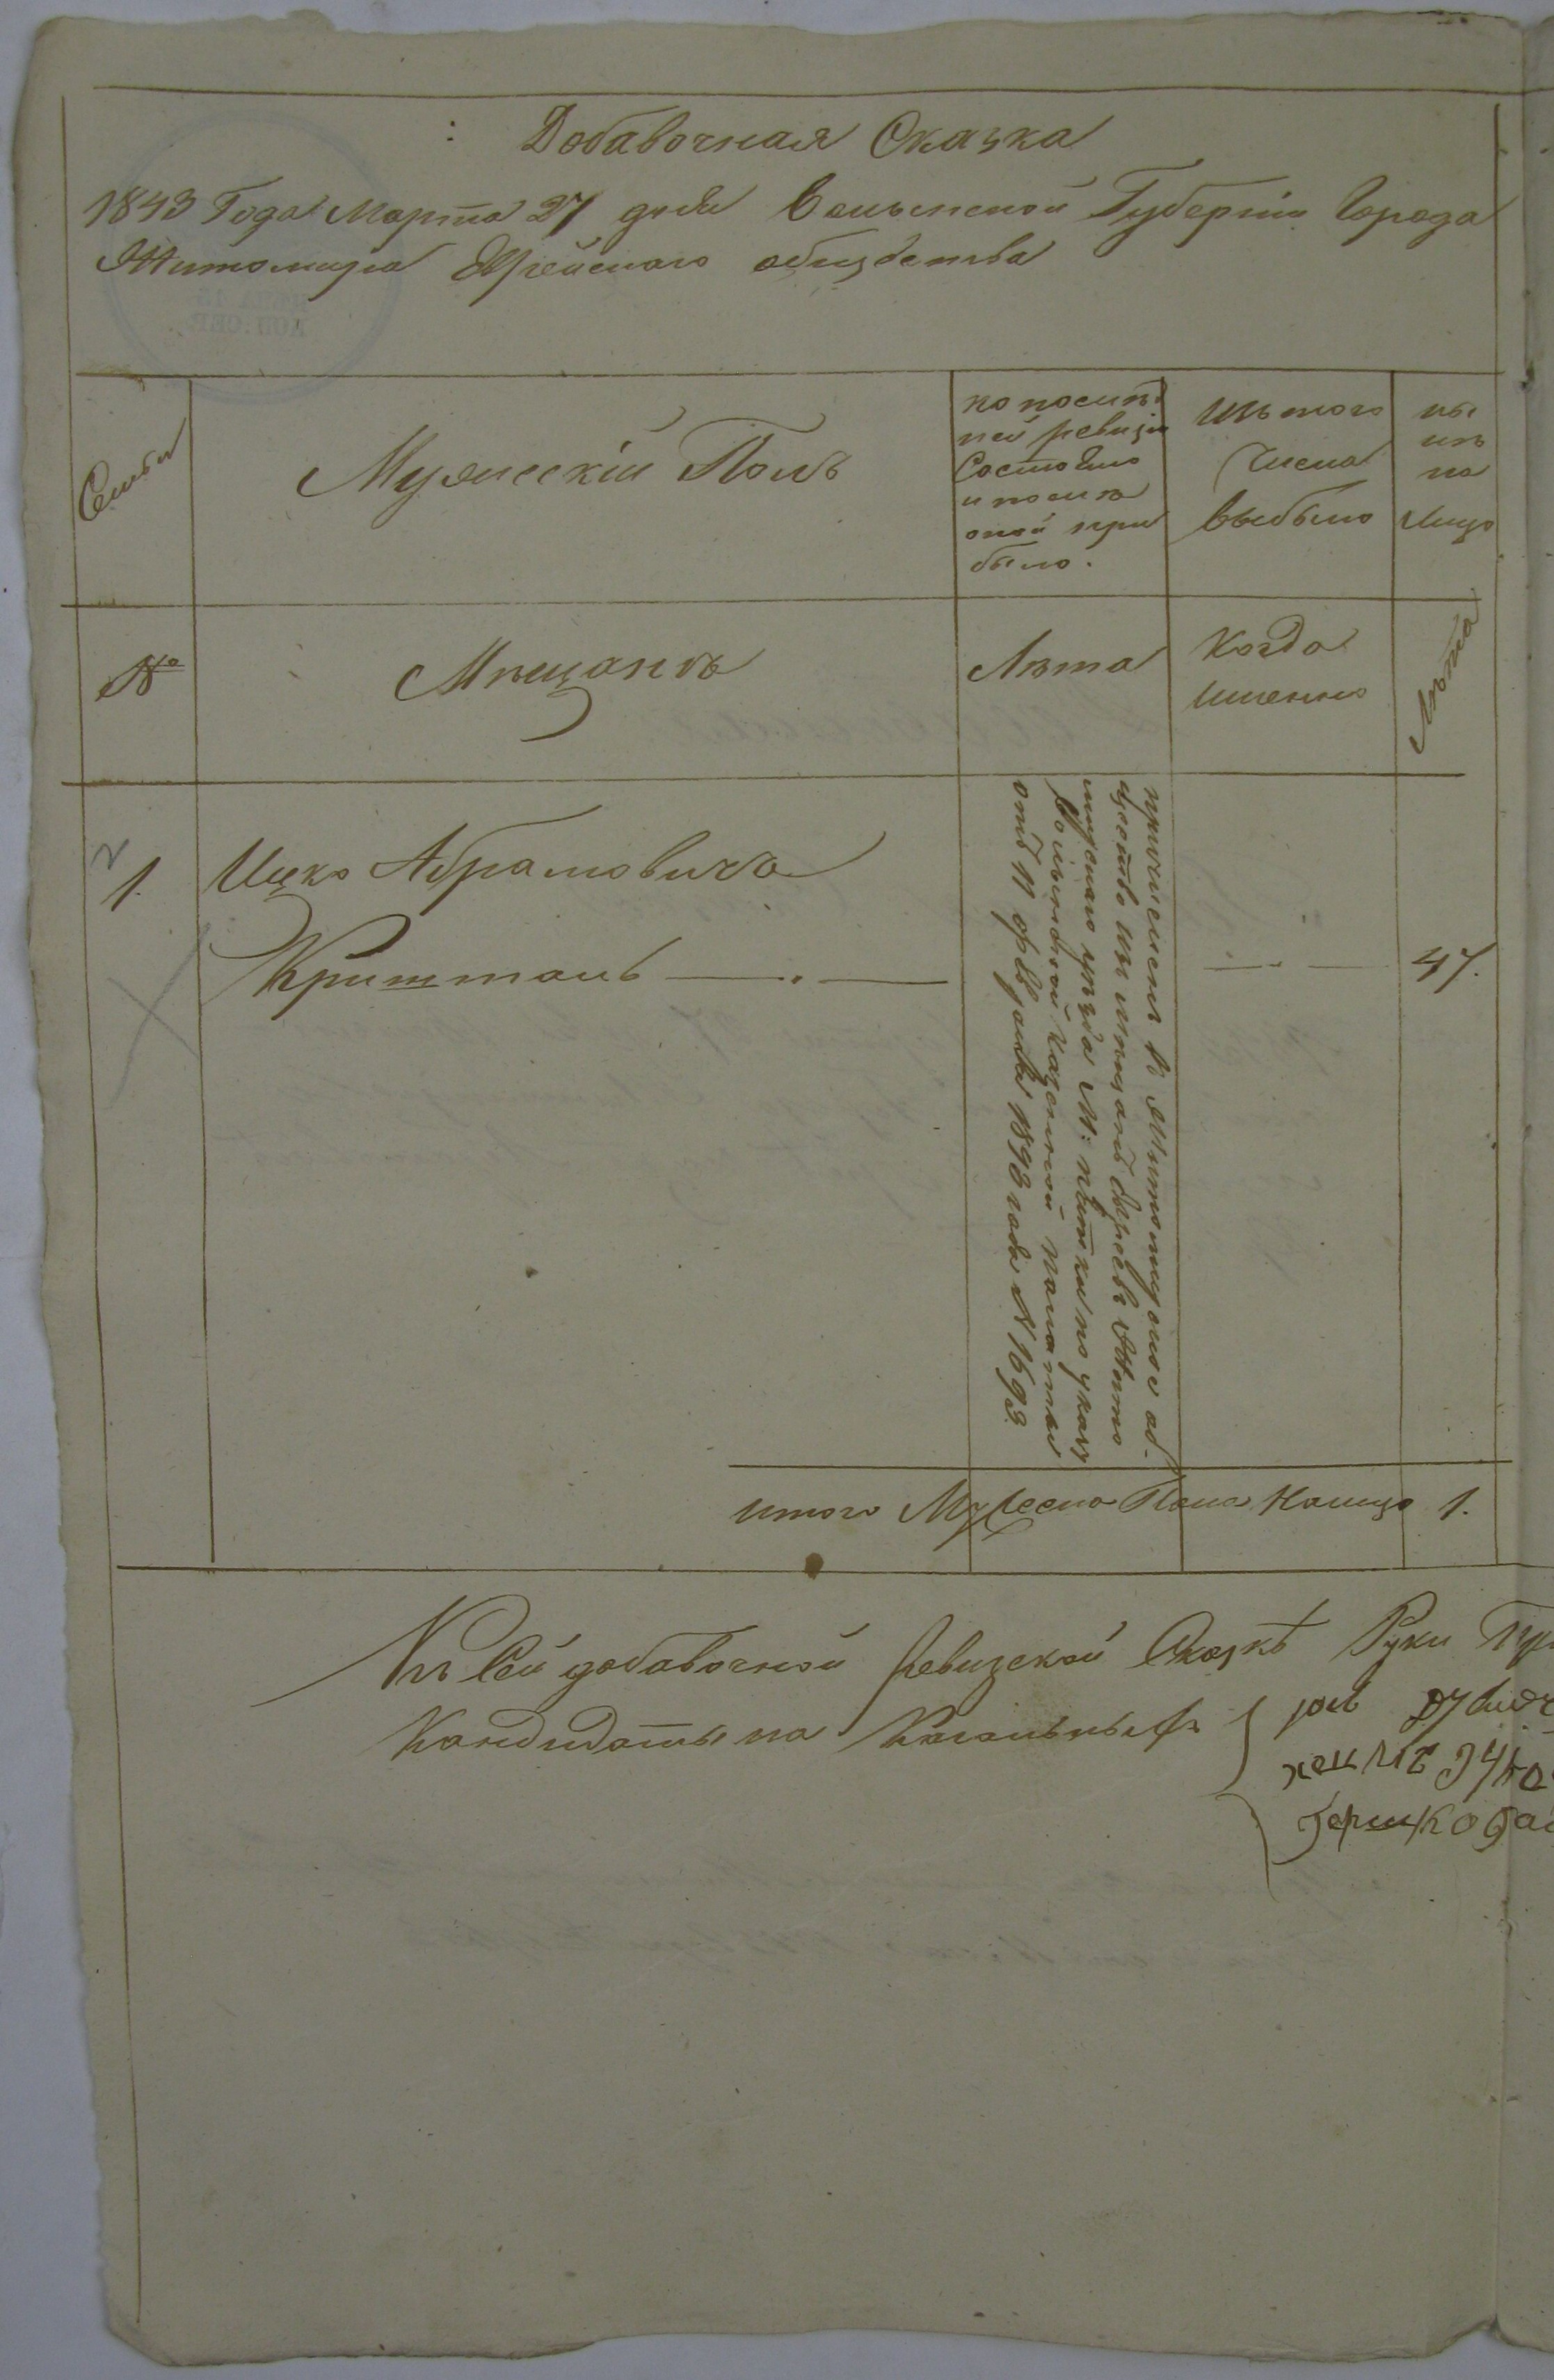 Добавочная Сказка
1843 Года Марта 27 дня Волынской Губернiи Города
Житомира Еврейскаго общества
Семьи
Мужескiй Полъ
по послѣд
ней ревизiи
Состояло
и послѣ
оной при
было.
Изъ того
Числа
выбыло
ны
нѣ
на
Лицо
№
Мѣщанъ
Лѣта
Когда
Именно
Лѣта
1.
Ицко Абрамовичъ
Кришталь
причисленъ въ Житомирское об-
щество изъ мѣщанъ Евреевъ Жито
мирскаго уѣзда М: Пятки по указу
Волынской Казенной палаты
отъ 11 февраля 1843 года № 1693.
47.
итого Мужеска Пола На лицо 1.
Къ Сей добавочной Ревизской Сказкѣ Руки
Кандидаты на Кагальныхъ
Гершко